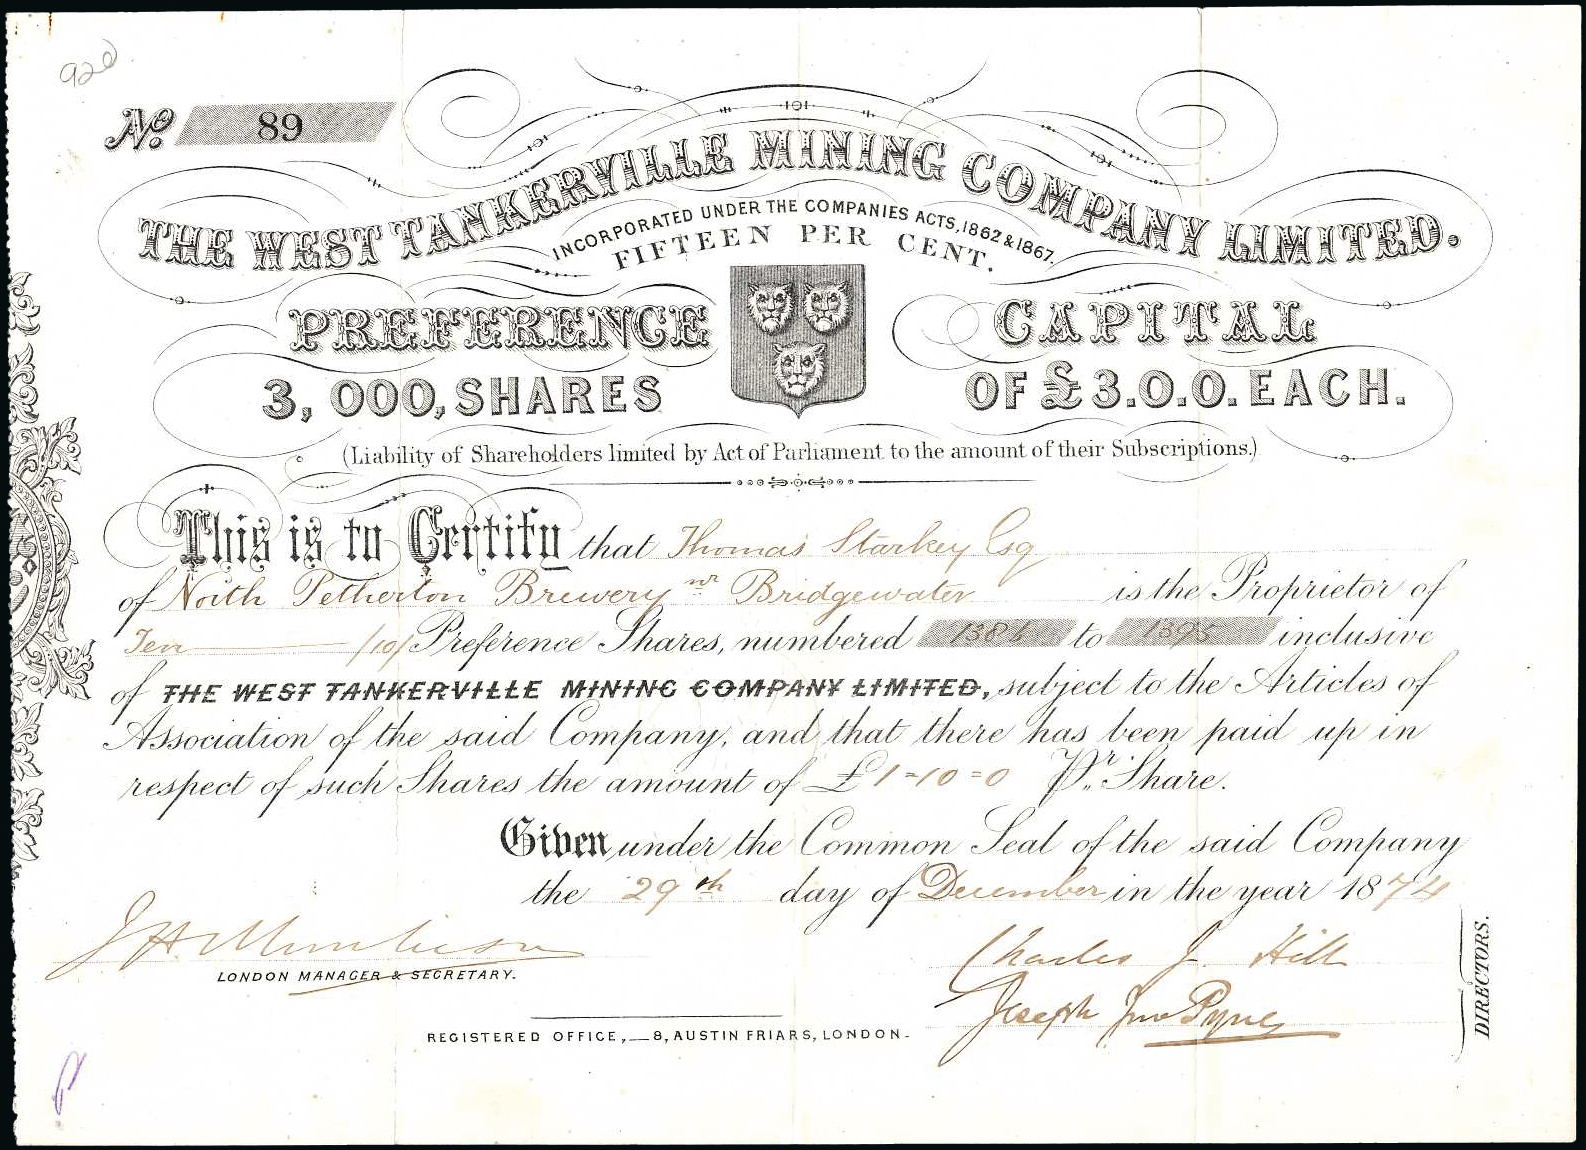 920
No. 89
THE WEST TANKERVILLE MINING COMPANY LIMITED.
INCORPORATED UNDER THE COMPANIES ACTS, 1862 & 1867.
FIFTEEN PER CENT.
PREFERENCE CAPITAL
3,000, SHARES OF £3.0.0. EACH.
(Liability of Shareholders limited by Act of Parliament to the amount of their Subscriptions.)
This is to Certify that Thomas Starkey Esq
of North Petherton Brewery nr Bridgewater is the Proprietor of
Ten /10/ Preference Shares, numbered 1386 to 1395 inclusive
of THE WEST TANKERVILLE MINING COMPANY LIMITED, subject to the Articles of
Association of the said Company, and that there has been paid up in
respect of such Shares the amount of £1-10=0 Pr. Share.
Given under the Common Seal of the said Company
the 29th day of December in the year 1874
J H Murchison
LONDON MANAGER & SECRETARY.
Charles J. Hill
Joseph Jno Pyne
DIRECTORS.
REGISTERED OFFICE,—8, AUSTIN FRIARS, LONDON.